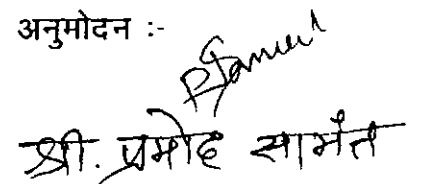 अनुमोदन :-
PSamant
श्री. प्रमोद सामंत